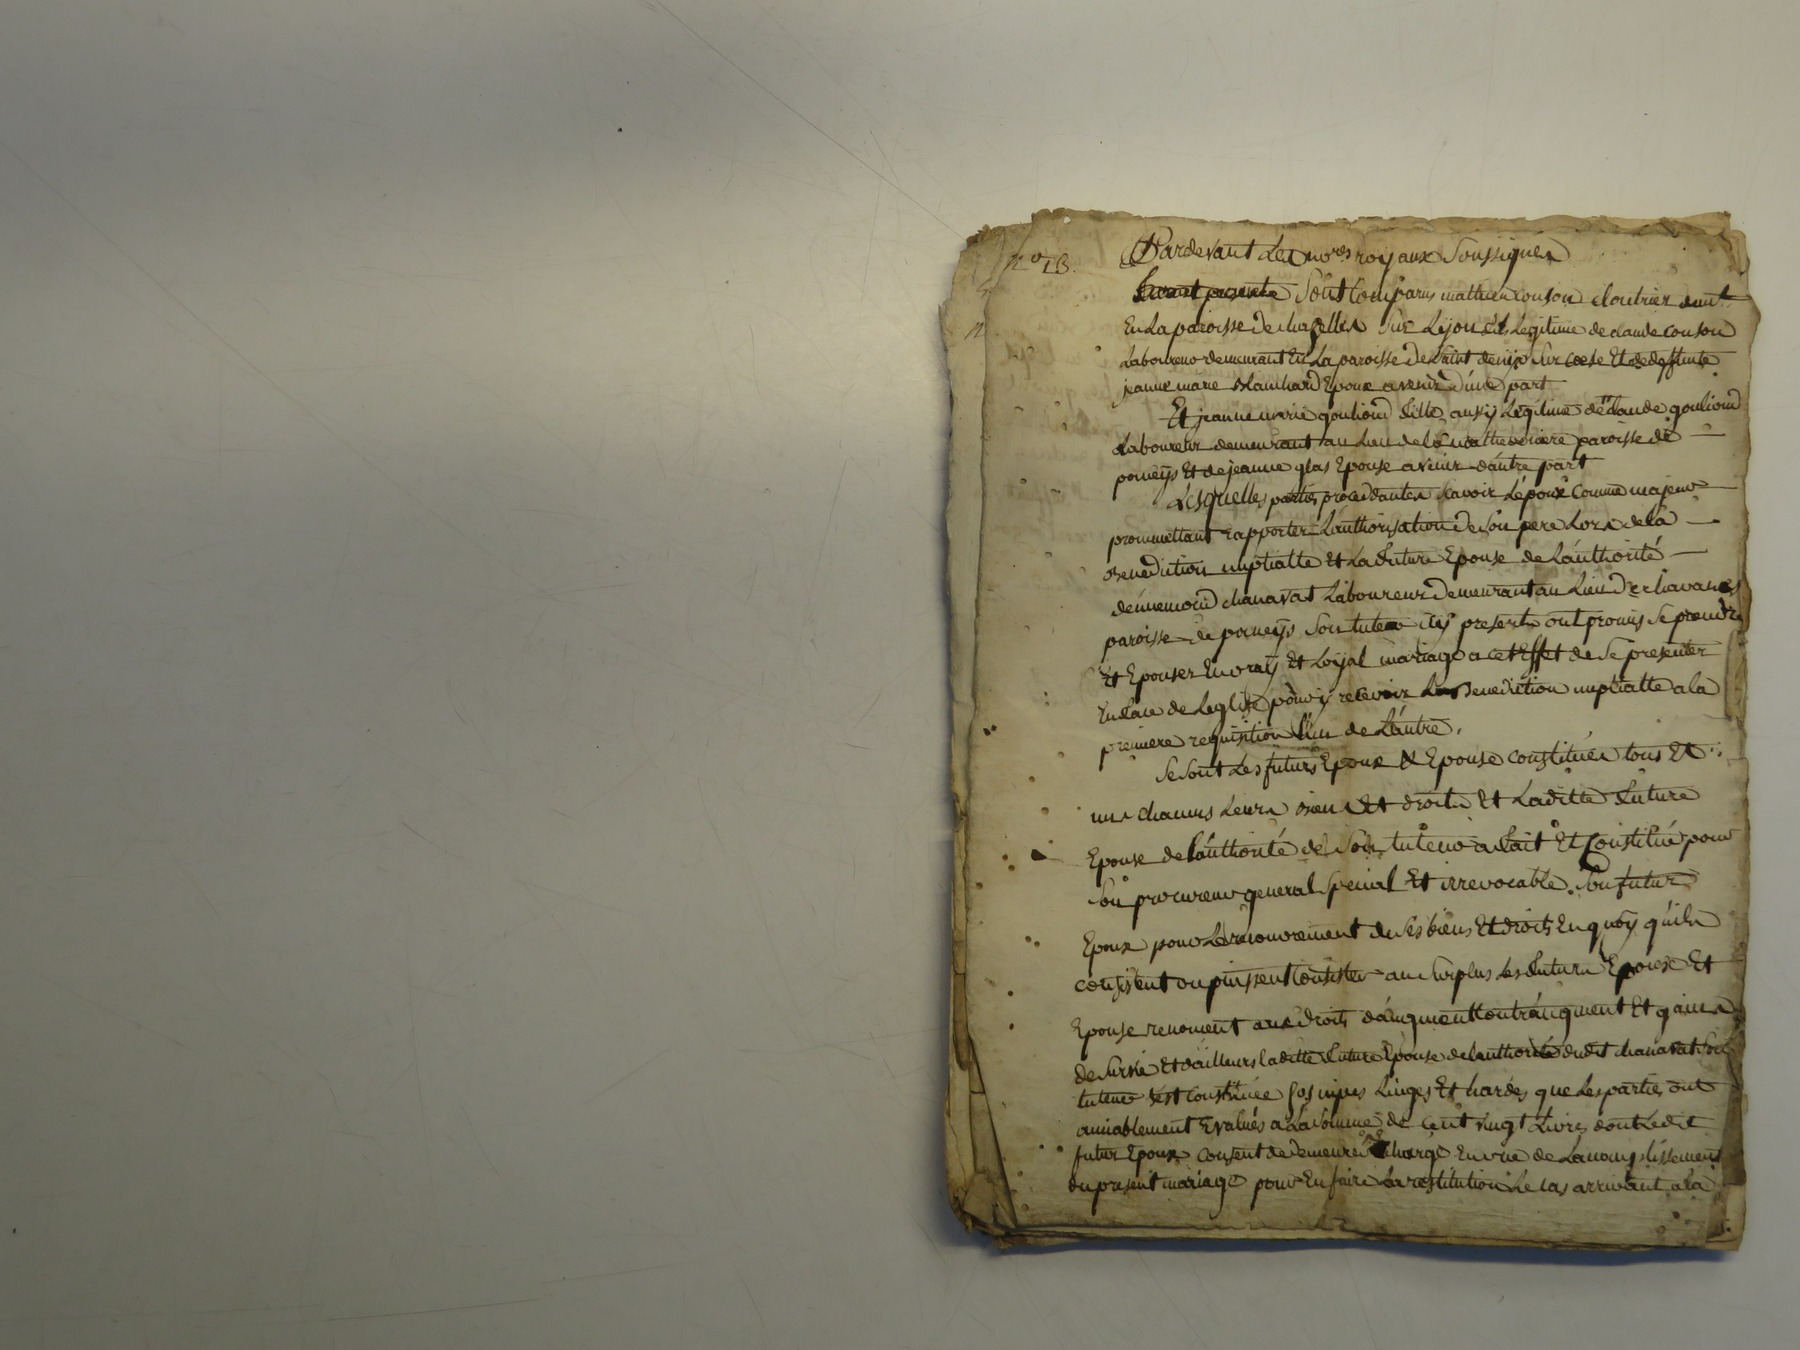 n° 13.
Pardevant Les no.res royaux Soussignés
Sont Comparus mathieu conson cloutrier demt
En La paroisse de chazelles Sur Lyon fils Legitime de claude conson
Laboureur demeurant En La paroisse de Saint denis Sur Coise Et de deffunte
jeanne marie blanchard Epoux avenir d'une part
Et jeanne marie goulion fille aussy Legitime de claude goulion
Laboureur demeurant au Lieu de la paroisse de
pomeys Et de jeanne glas Epouse avenir d'autre part
Lesquelles parties procedantes scavoir L'epoux Comme majeur
prommettant rapporter L'authorisation de Son pere Lors de la
benediction nuptialle Et La future Epouse de L'authorité
dennemond chanavat Laboureur demeurant au Lieu de chavannes
paroisse de pomeys Son tuteur icy present ont promis Se prendre
Et Epouser En vray Et Loyal mariage a cet Effet de Se presenter
En face de Leglise pour y recevoir La Benediction nuptialle a la
premiere requisition L'un de L'autre.
Se Sont Les futurs Epoux & Epouse constitués tous Et
uns chacuns Leurs biens Et droits Et Laditte future
Epouse de L'authorité de Son tuteur a fait Et Constitué pour
Son procureur general Special Et irrevocable Son futur
Epoux pour Le recouvrement de Ses biens Et droits En quoy qu'ils
consistent ou puissent Consister au Surplus Les futurs Epoux Et
Epouse renoncent aux droits d'augment Contr'augment Et gains
de Survie Et d'ailleurs laditte future Epouse de l'authorité dudit chanavat Son
tuteur s'est Constituée Ses nipes Linges Et hardes que Les parties ont
amiablement Evalués a La Somme de Cent vingt Livres dont Ledit
futur Epoux Consent de demeurer chargé En vue de L'accomplissement
du present mariage pour En faire La restitution Le cas arrivant a la